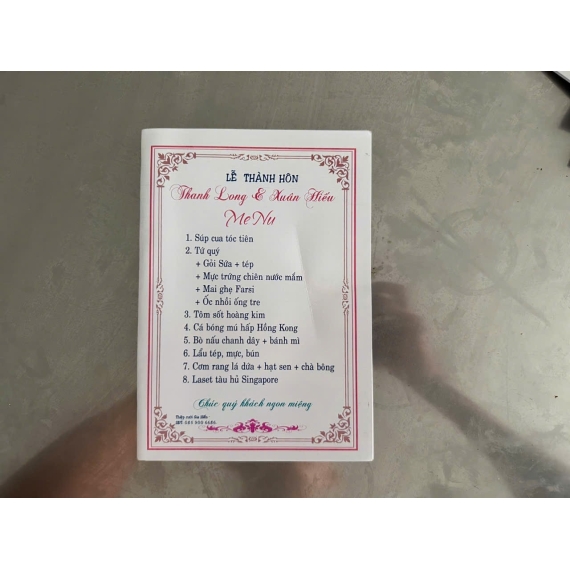 LỄ THÀNH HÔN
Thanh Long & Xuân Hiếu
MeNu
1. Súp cua tóc tiên
2. Tứ quý
+ Gỏi Sứa + tép
+ Mực trứng chiên nước mắm
+ Mai ghẹ Farsi
+ Ốc nhồi ống tre
3. Tôm sốt hoàng kim
4. Cá bóng mú hấp Hồng Kong
5. Bò nấu chanh dây + bánh mì
6. Lẩu tép, mực, bún
7. Cơm rang lá dứa + hạt sen + chà bông
8. Laset tàu hủ Singapore
Chúc quý khách ngon miệng